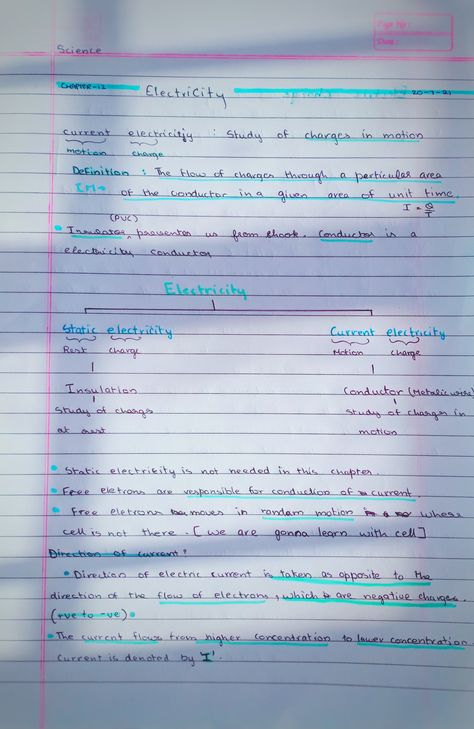 Page No:
Date:
Science
CHAPTER-12 Electricity 20-7-21
current electricity : Study of charges in motion
motion charge
Definition : The flow of charges through a particular area
IMP of the conductor in a given area of unit time.
I = Q/T
(PVC)
• Insulator preventes us from shock. Conductor is a
electricity conductor
Electricity
Static electricity Current electricity
Rest charge Motion charge
Insulation Conductor (Metalic wire)
Study of charges study of charges in
at rest motion
• Static electricity is not needed in this chapter.
• Free eletrons are responsible for conduction of current.
• Free eletrons moves in random motion where
cell is not there. [we are gonna learn with cell]
Direction of current :
• Direction of electric current is taken as opposite to the
direction of the flow of electrons, which are negative charges.
(+ve to -ve)
• The current flows from higher concentration to lower concentration
Current is denoted by 'I'.